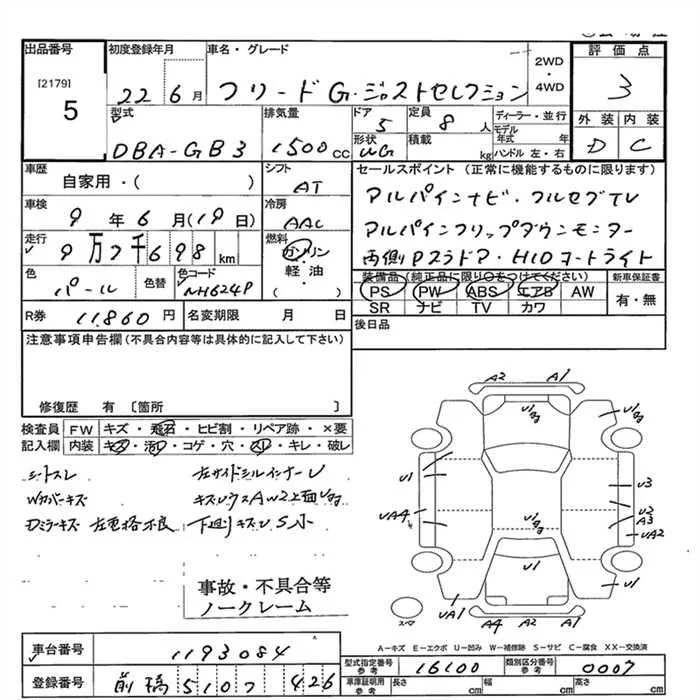 出品番号
[2179]
5
初度登録年月
22年6月
車名・グレード
フリード G・ジャストセレクション
2WD
・
4WD
評価点
3
外装
内装
D
C
型式
DBA-GB3
排気量
1500CC
ドア
5
定員
8人
形状
UG
積載
kg
ディーラー・並行
モデル年式
年
ハンドル 左・右
車歴
自家用・( )
シフト
AT
車検
9年6月(19日)
冷房
AAC
走行
9万7千698km
燃料
ガソリン
・
軽油
( )
色
パール
色替
色コード
NH624P
R券
11,860円
名変期限
月 日
セールスポイント (正常に機能するものに限ります)
アルパインナビ・フルセグTV
アルパインフリップダウンモニター
両側Pスラドア・HIDオートライト
装備品 (純正品に限り○をつけてください)
PS PW ABS エアB AW
SR ナビ TV カワ
新車保証書
有・無
後日品
注意事項申告欄(不具合内容等は具体的に記入して下さい)
修復歴 有 〔箇所 〕
検査員記入欄
FW キズ・飛石・ヒビ割・リペア跡・×要
内装 キズ・汚レ・コゲ・穴・スレ・キレ・破レ
シートスレ
Wカバーキズ
Dミラーキズ 左電格不良
左サイドシルインナーU
下廻りキズU S小
事故・不具合等
ノークレーム
A2 A1
U1 U1
U1
UA4
U3
U2
A3
UA2
U1
UA1
U1
A4 A2 A1
スペア
A-キズ E-エクボ U-凹み W-補修跡 S-サビ C-腐食 XX-交換済
車台番号
1193084
登録番号
前橋 510 ワ 426
型式指定番号
参考
16100
類別区分番号
参考
0007
車庫証明用
参考
長さ cm
幅 cm
高さ cm